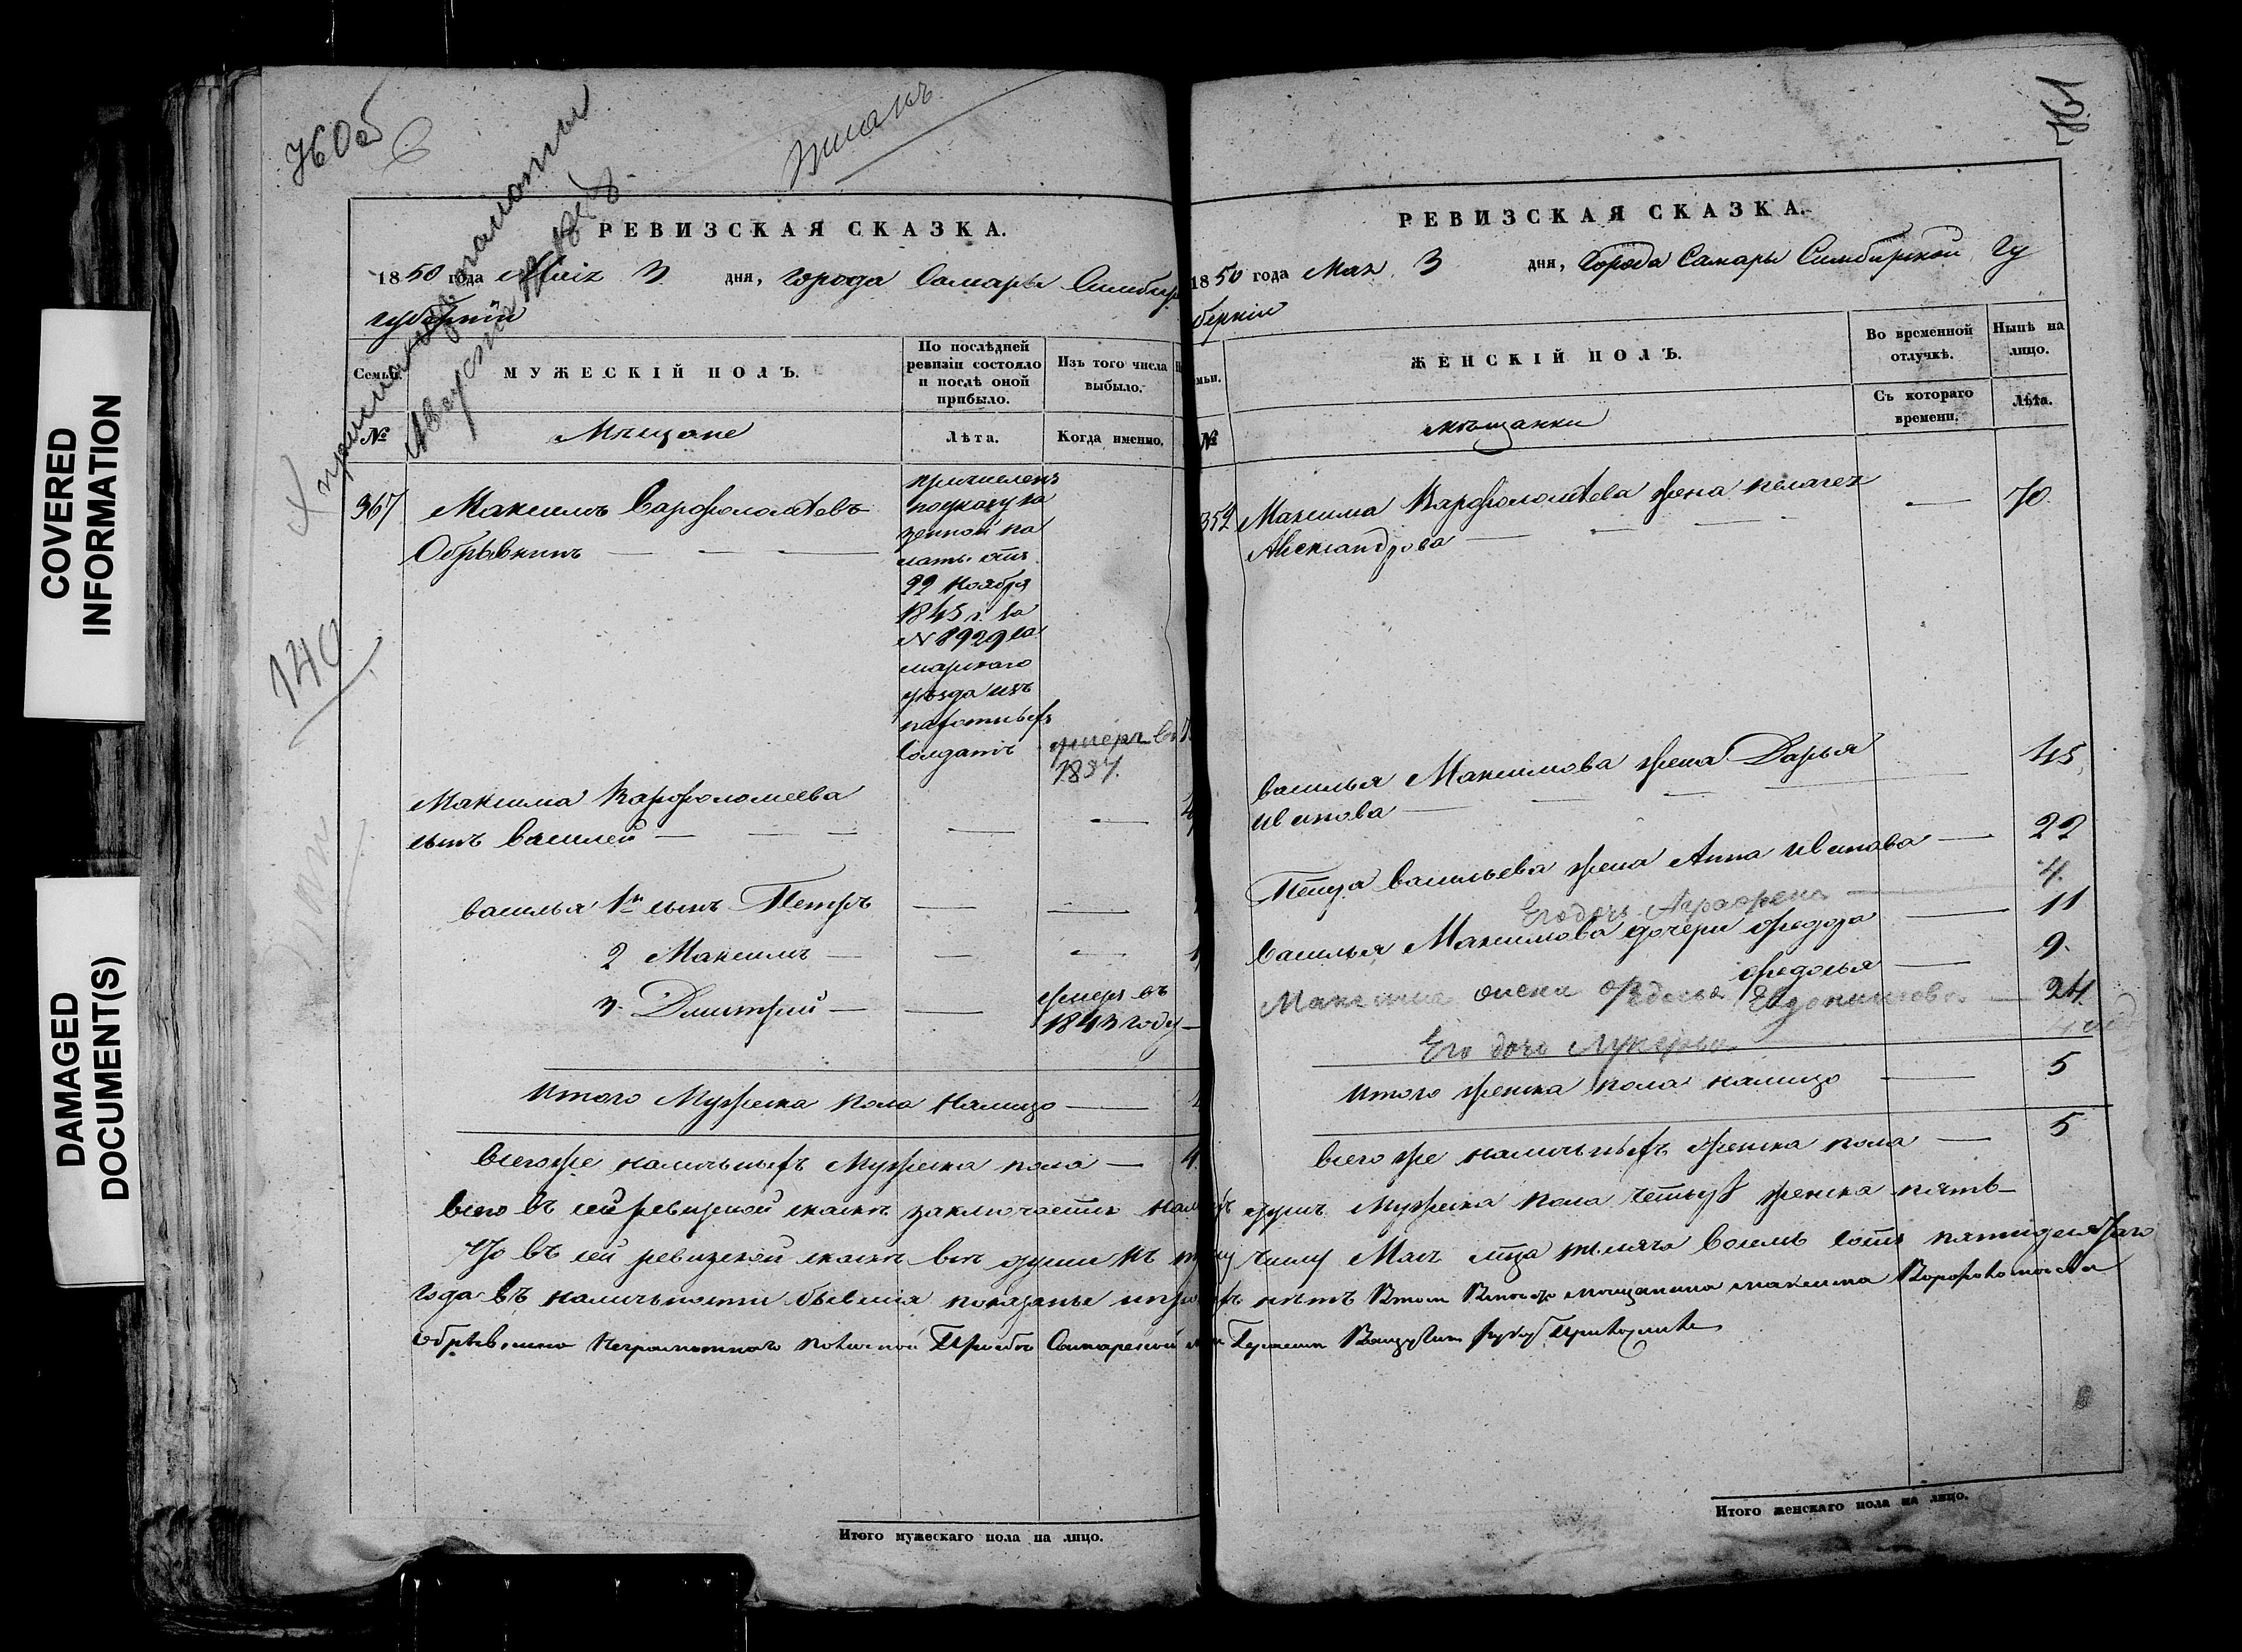 COVERED
INFORMATION
DAMAGED
DOCUMENT(S)
760об
140
РЕВИЗСКАЯ СКАЗКА.
1850 года Маія 3 дня, города Самары Симбир
губерніи
Семьи.
МУЖЕСКІЙ ПОЛЪ.
По послѣдней
ревизіи состояло
и послѣ оной
прибыло.
Изъ того числа
выбыло.
№
Мѣщане
Лѣта.
Когда именно.
367 Максимъ Варфоломѣевъ
Обрѣвкинъ
причисленъ
по указу ка
зенной па
латы отъ
22 Ноября
1845 г. за
№ 8929 Са
марскаго
уѣзда изъ
пахотныхъ
Солдатъ
умеръ въ
Максима Варфоломеева
сынъ Василей
Василья 1й сынъ Петръ
2 Максимъ
3 Дмитрий
умеръ въ
1843 году
Итого Мужеска пола налицо
Всего же наличныхъ Мужеска пола — 4
Всего въ сей ревизской сказкѣ заключается
Что въ сей ревизской сказкѣ всѣ души къ
года въ наличности бывшія показаны и
Итого мужескаго пола на лицо.
761
РЕВИЗСКАЯ СКАЗКА.
1850 года Маія 3 дня, Города Самары Симбирской Гу
берніи
мьи.
ЖЕНСКІЙ ПОЛЪ.
Во временной
отлучкѣ.
Нынѣ на
лицо.
Съ котораго
времени.
Лѣта.
№
мѣщанки
352 Максима Варфоломѣева жена Пелагея 70
Александрова
Василья Максимова жена Дарья 45
Иванова
Петра Васильева жена Анна Иванова 22
Его дочь Аграфена 4
Василья Максимова дочери Федора 11
Федосья 9
Максима жена Федосья Евдокимова 24
Его дочь Лукерья
Итого женска пола налицо 5
Всего же наличныхъ женска пола 5
душъ Мужеска пола четыре женска пять
числу Маія мца тысяча Восемь сотъ пятидесятаго
нѣтъ мѣщанина Максима
Итого женскаго пола на лицо.